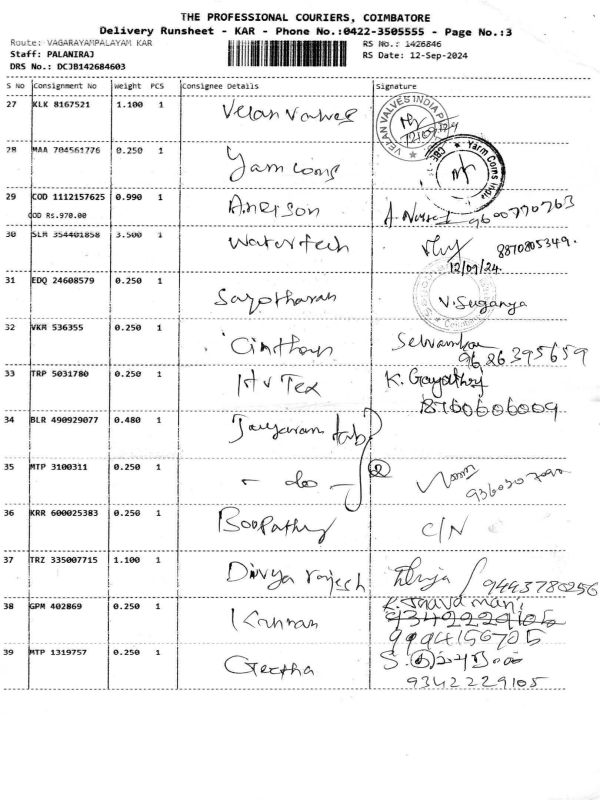 THE PROFESSIONAL COURIERS, COIMBATORE
Delivery Runsheet - KAR - Phone No.:0422-3505555 - Page No.:3
Route: VAGARAYAMPALAYAM KAR
RS No.: 1426846
Staff: PALANIRAJ
RS Date: 12-Sep-2024
DRS No.: DCJB142684603
S No Consignment No Weight PCS Consignee Details Signature
27 KLK 8167521 1.100 1 Velan Valves
VELAN VALVES INDIA
12/09/24
28 MAA 704561776 0.250 1 Yarm Coins
Yarm Coins India
CBE
29 COD 1112157625 0.990 1 Anrison
COD Rs.970.00
9600770763
30 SLM 354401858 3.500 1 Watertech
8870805349.
12/09/24.
31 EDQ 24608579 0.250 1
V. Suganya
32 VKM 536355 0.250 1
9626395659
33 TRP 5031780 0.250 1 H v Tex K. Gayathri
8760606009
34 BLR 490929077 0.480 1 Jayaram
35 MTP 3100311 0.250 1 - do - 2
36 KRR 600025383 0.250 1 Boopathy C/N
37 TRZ 335007715 1.100 1 Divya rajesh
9443780256
38 GPM 402869 0.250 1 Kannan
9342229105
9994156705
39 MTP 1319757 0.250 1 Geetha
9342229105